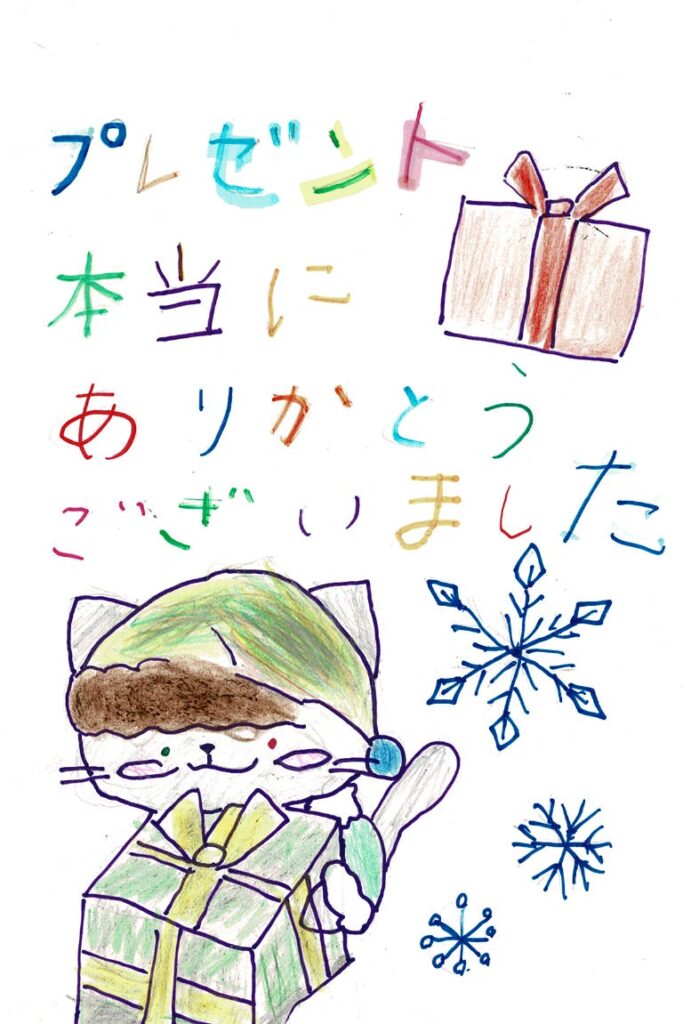 プレゼント
本当に
ありかとう
ございました